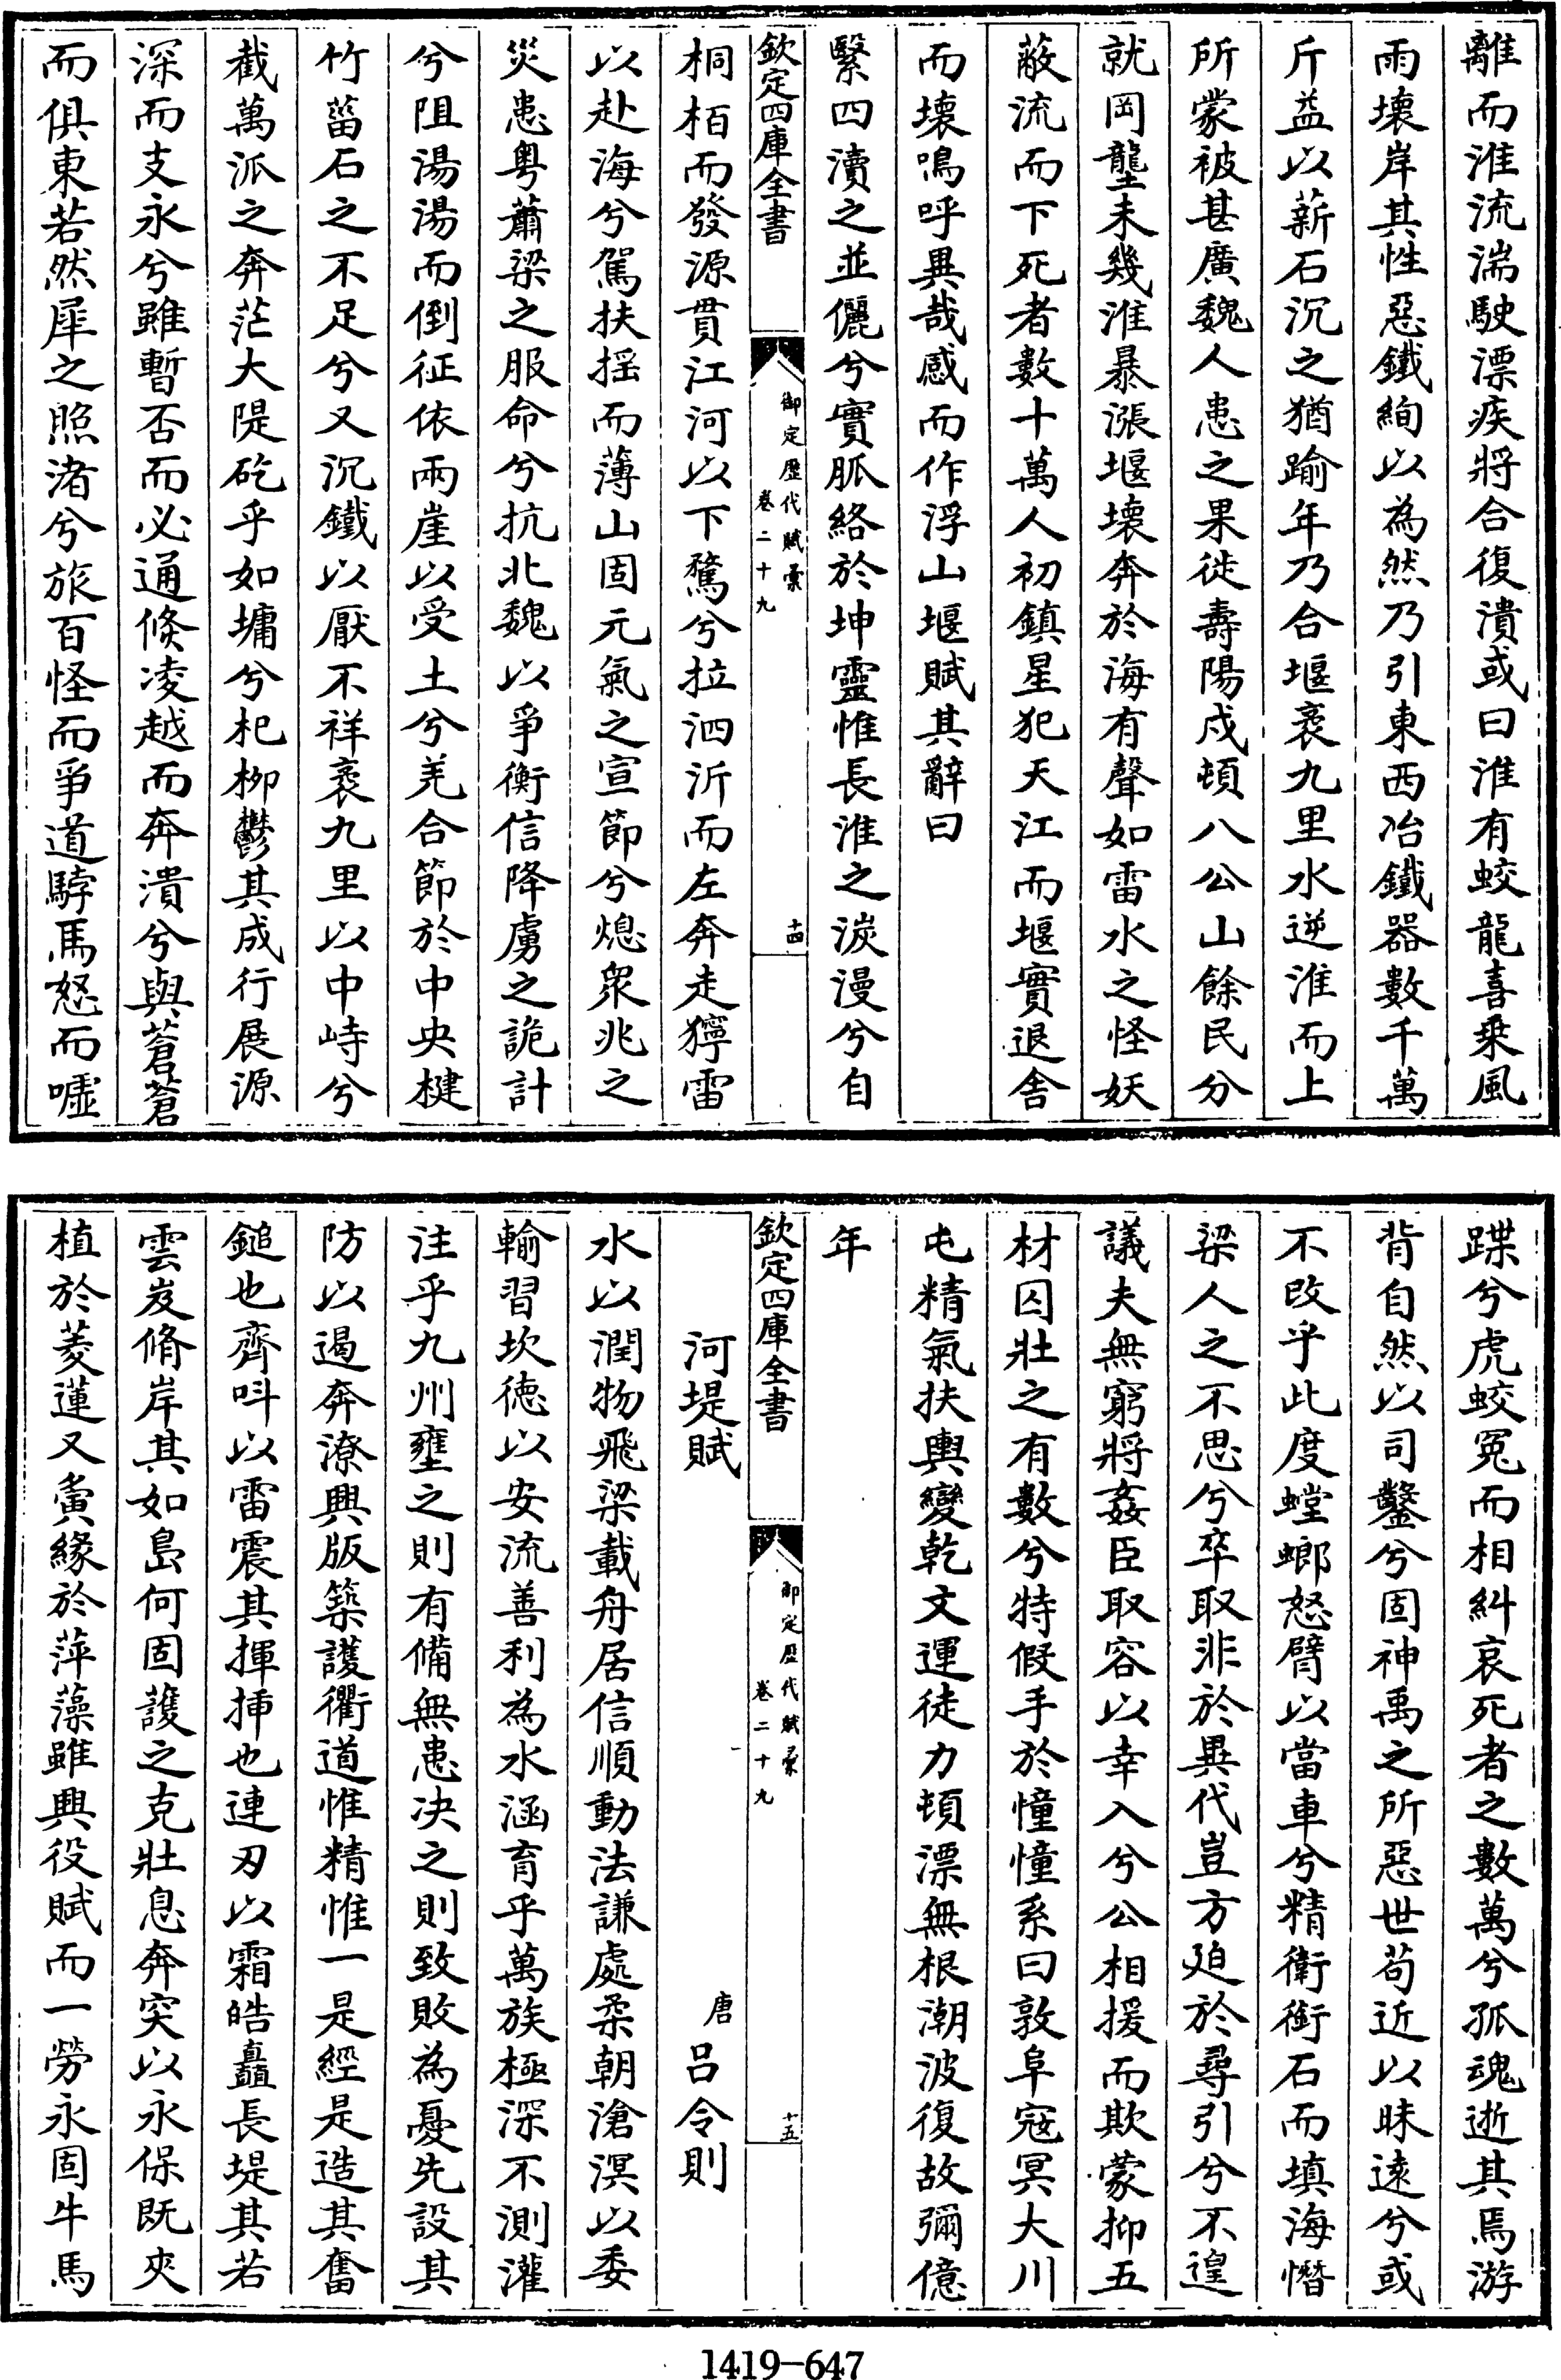 離而淮流湍駛漂疾將合復潰或曰淮有蛟龍喜乗風
雨壊岸其性惡鐵絢以為然乃引東西冶鐵器數千萬
斤益以薪石沉之猶踰年乃合堰袤九里水逆淮而上
所蒙被甚廣魏人患之果徙壽陽戍頓八公山餘民分
就岡壟未幾淮暴漲堰壊奔於海有聲如雷水之怪妖
蔽流而下死者數十萬人初鎮星犯天江而堰實退舍
而壊鳴呼異哉感而作浮山堰賦其辭曰
繄四瀆之並儷兮實脈絡於坤靈惟長淮之湠漫兮自
欽定四庫全書
御定歴代賦彙
卷二十九
十四
桐栢而發源貫江河以下騖兮拉泗沂而左奔走獰雷
以赴海兮駕扶揺而薄山固元氣之宣節兮熄衆兆之
災患粤蕭梁之服命兮抗北魏以爭衡信降虜之詭計
兮阻湯湯而倒征依兩崖以受土兮羌合節於中央楗
竹菑石之不足兮又沉鐵以厭不祥袤九里以中峙兮
截萬派之奔茫大隄矻乎如墉兮杞柳鬱其成行展源
深而支永兮雖暫否而必通倐凌越而奔潰兮與蒼蒼
而俱東若然犀之照渚兮旅百怪而爭道騂馬怒而嘘
蹀兮虎蛟寃而相糾哀死者之數萬兮孤魂逝其焉游
背自然以司鑿兮固神禹之所惡世苟近以昧遠兮或
不改乎此度螳螂怒臂以當車兮精衛銜石而填海憯
梁人之不思兮卒取非於異代豈方廹於尋引兮不遑
議夫無窮將姦臣取容以幸入兮公相援而欺蒙抑五
材囚壯之有數兮特假手於憧憧系曰敦阜冦冥大川
屯精氣扶輿變乾文運徒力頓漂無根潮波復故彌億
年
欽定四庫全書
御定歴代賦彙
卷二十九
十五
河堤賦
唐 呂令則
水以潤物飛梁載舟居信順動法謙處柔朝滄溟以委
輸習坎徳以安流善利為水涵育乎萬族極深不測灌
注乎九州壅之則有備無患决之則致敗為憂先設其
防以遏奔潦興版築護衢道惟精惟一是經是造其奮
鎚也齊呌以雷震其揮挿也連刃以霜皓矗長堤其若
雲岌脩岸其如島何固護之克壯息奔突以永保既夾
植於菱蓮又夤緣於萍藻雖興役賦而一勞永固牛馬
1419-647